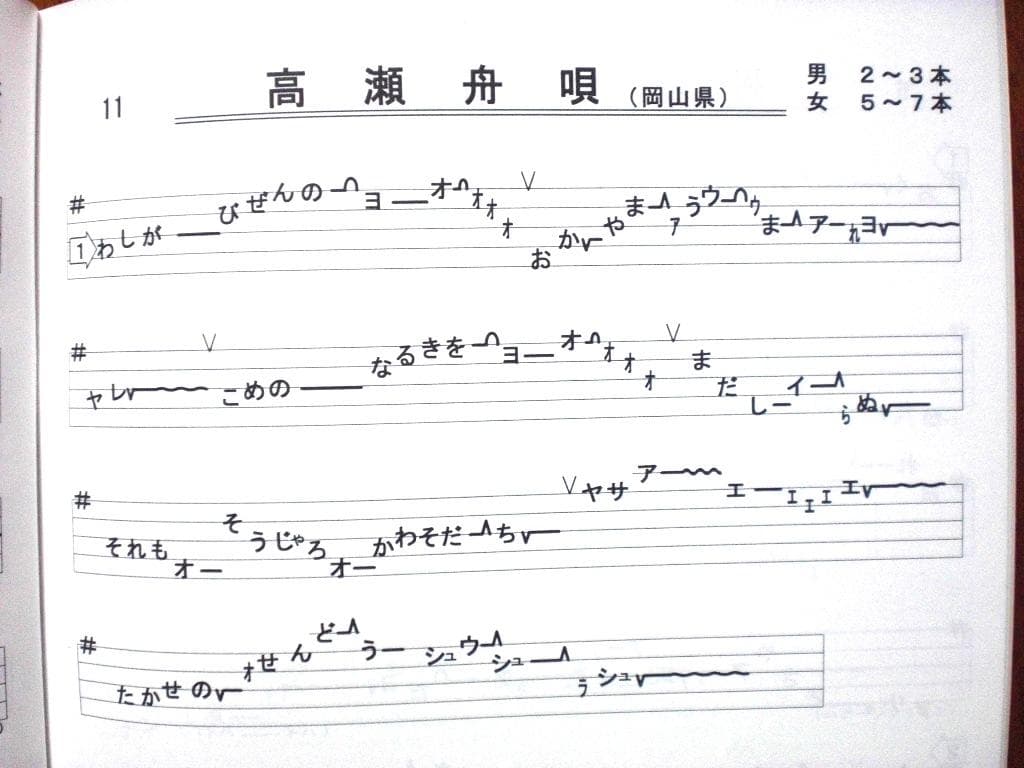 11 高瀬舟唄（岡山県）
男 2～3本
女 5～7本
# 1 わしが―びぜんの―ヨ―オォォォ ∨ おかーやまーァうウーゥまーアーれヨ
# ャレ ∨ こめの―なるきを―ヨ―オォォォ ∨ まだしーイーらぬ
# それもオーそうじゃろオーかわそだーち ∨ ヤサアーエーェェェエ
# たかせのォせんどーうーシュウーシューぅシュ